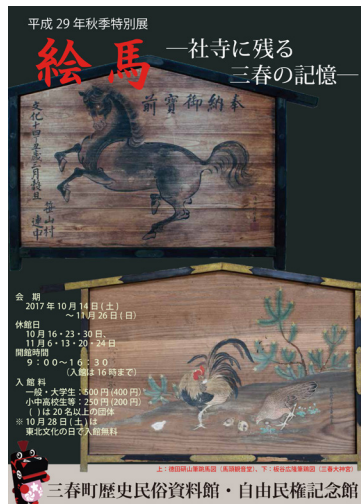 平成29年秋季特別展
絵馬
―社寺に残る
三春の記憶―
奉納御寶前
文化十四丁丑三月穀日
柴山村
連中
会 期
2017年10月14日(土)
～11月26日(日)
休館日
10月16・23・30日、
11月6・13・20・24日
開館時間
9:00～16:30
(入館は16時まで)
入館料
一般・大学生：500円(400円)
小中高校生等：250円(200円)
( )は20名以上の団体
※10月28日(土)は
東北文化の日で入館無料
上：徳田研山筆駒馬図(馬頭観音堂)、下：根谷広隆筆鶏図(三春大神宮)
三春町歴史民俗資料館・自由民権記念館